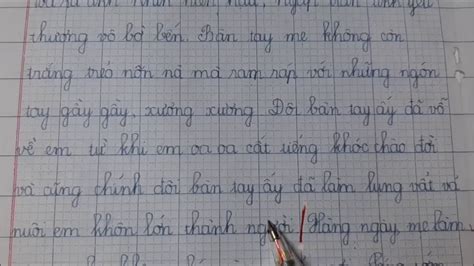 thương vô bờ bến. Bàn tay mẹ không còn
trắng trẻo nõn nà mà ram ráp với những ngón
tay gầy gầy, xương xương. Đôi bàn tay ấy đã vỗ
về em từ khi em oa oa cất tiếng khóc chào đời
và cũng chính đôi bàn tay ấy đã làm lụng vất vả
nuôi em khôn lớn thành người / Hàng ngày, mẹ làm